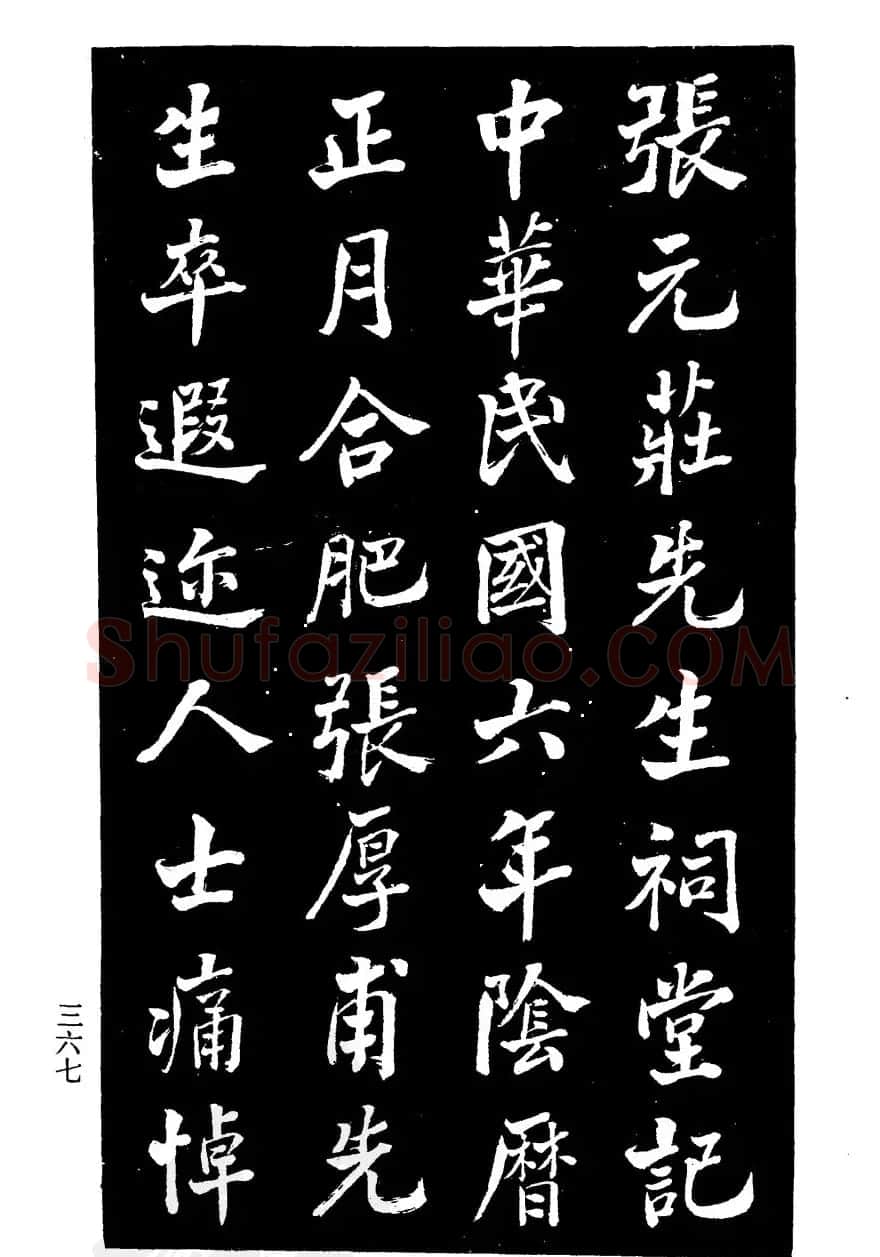 張元莊先生祠堂記
中華民國六年陰曆
正月合肥張厚甫先
生卒遐迩人士痛悼
三六七
Shufaziliao.COM